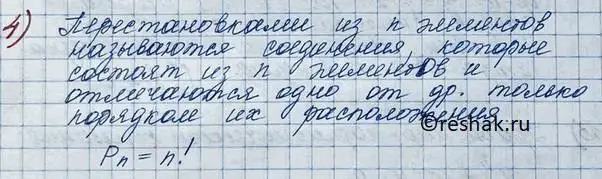 4) Перестановками из n элементов
называются соединения, которые
состоят из n элементов и
отличаются одно от др. только
порядком их расположения
©reshak.ru
Pn = n!